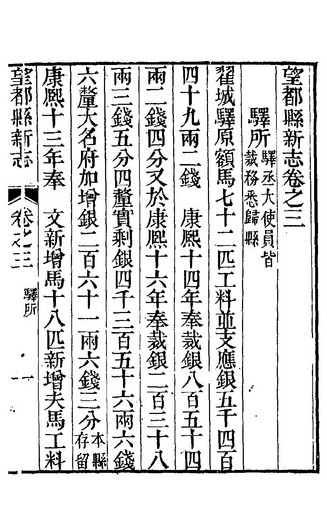 望都縣新志卷之三
驛所 驛丞大使員皆裁務悉歸縣
翟城驛原額馬七十二匹工料並支應銀五千四百
四十九兩二錢 康熙十四年奉裁銀八百五十四
兩二錢四分又於康熙十六年奉裁銀二百三十八
兩三錢五分四釐實剩銀四千三百五十六兩六錢
六釐大名府加增銀二百六十一兩六錢三分本縣存留
康熙十三年奉 文新增馬十八匹新增夫馬工料
望都縣新志 卷之三 驛所 一